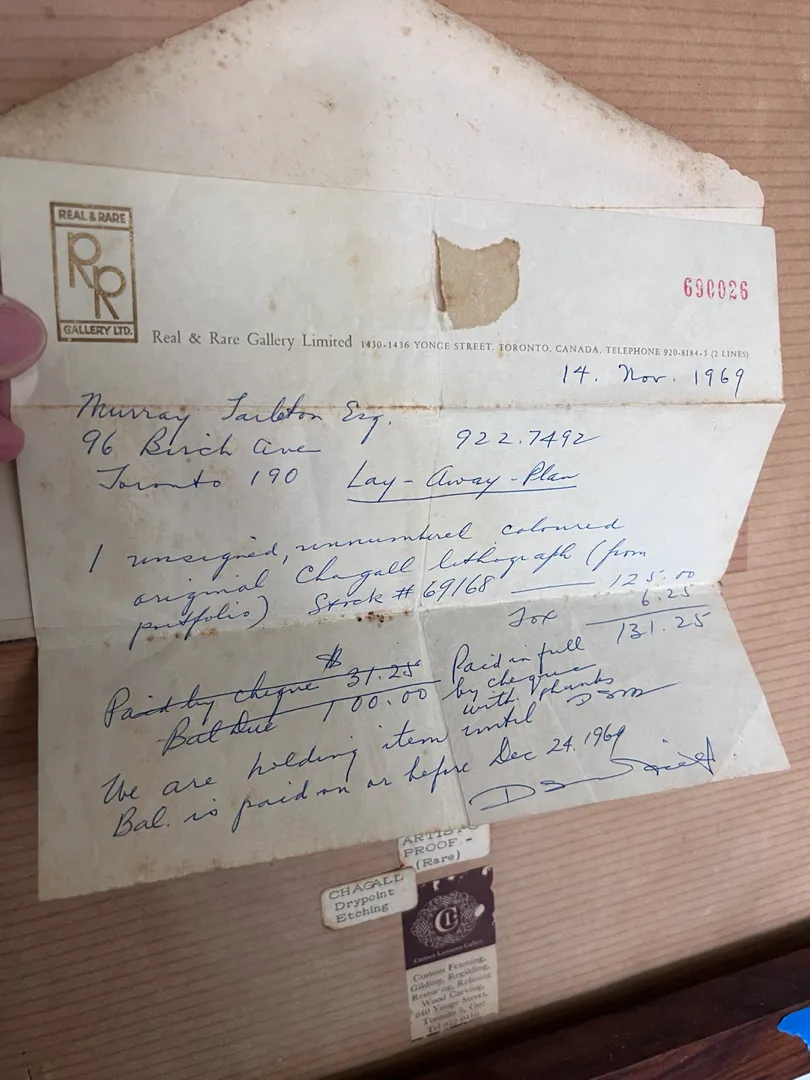 REAL & RARE
RR
GALLERY LTD.
690026
Real & Rare Gallery Limited 1430-1436 YONGE STREET, TORONTO, CANADA. TELEPHONE 920-8184-5 (2 LINES)
14. Nov. 1969
Murray Tarleton Esq.
96 Birch Ave 922.7492
Toronto 190 Lay-Away-Plan
1 unsigned, unnumbered coloured
original Chagall lithograph (from
portfolio) Stock # 69168 125.00
Tax 6.25
131.25
Paid by cheque $ 31.25
Bal Due 100.00
Paid in full
by cheque
with thanks
We are holding item until
Bal. is paid on or before Dec 24. 1969
ARTIST'S
PROOF -
(Rare)
CHAGALL
Drypoint
Etching
Custom Framing,
Gilding, Regilding,
Wood Carving,
840 Yonge Street,
Toronto 5, Ont